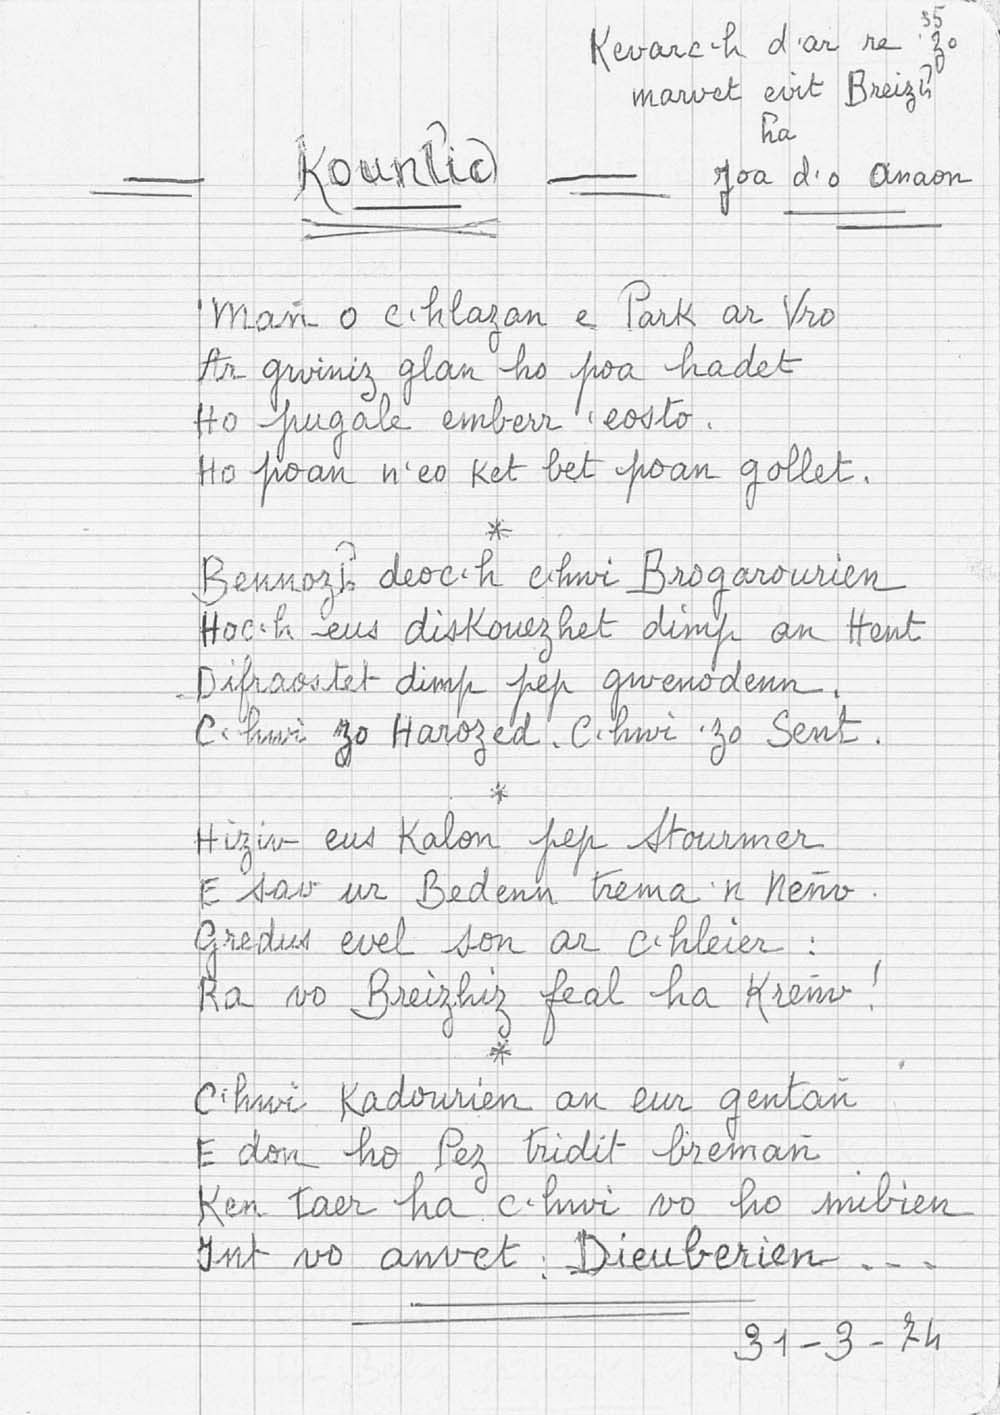 35
Kevarc'h d'ar re 'zo
marvet evit Breizh
ha
Joa d'o Anaon
'Mañ o c'hlazan e Park ar Vro
Ar gwiniz glan ho poa hadet
Ho pugale emberr 'eosto.
Ho poan n'eo ket bet poan gollet.
*
Bennozh deoc'h c'hwi Brogarourien
Hoc'h eus diskouezhet dimp an Hent
Difraostet dimp pep gwenodenn.
C'hwi zo Harozed. C'hwi 'zo Sent.
*
Hiziv eus Kalon pep Stourmer
E sav ur Bedenn trema 'n Neñv.
Gredus evel son ar c'hleier :
Ra vo Breizhiz feal ha Kreñv !
*
C'hwi Kadourien an eur gentañ
E don ho Pez tridit bremañ
Ken taer ha c'hwi vo ho mibien
Int vo anvet : Dieuberien ...
31-3-74